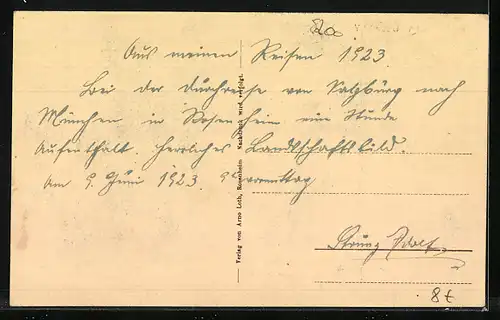 Aus meinen Reisen 1923.
Bei der Durchreise von Salzburg nach
München in Rosenheim eine Stunde
Aufenthalt. Herrliches Landschaftsbild.
Am 9. Juni 1923. vormittag
Verlag von Arno Loth, Rosenheim Nachdruck wird verfolgt.
8£